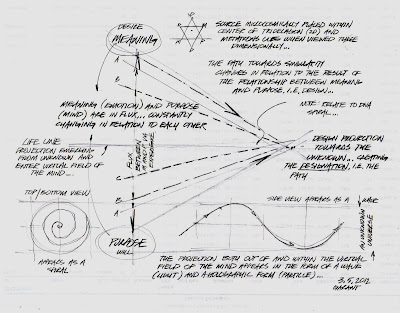 DESIRE
MEANING
SOURCE MICROCOSMICALLY PLACED WITHIN
CENTER OF TRIDECAGON (2D) AND
METATRONS CUBE WHEN VIEWED THREE
DIMENSIONALLY...
A
B
C
THE PATH TOWARDS SINGULARITY
CHANGES IN RELATION TO THE RESULT OF
THE RELATIONSHIP BETWEEN MEANING
AND PURPOSE, I.E., DESIGN...
NOTE: RELATE TO DNA
SPIRAL...
MEANING (EMOTION) AND PURPOSE
(MIND) ARE IN FLUX... CONSTANTLY
CHANGING IN RELATION TO EACH OTHER
LIFE LINE
PROJECTION EMERGING
FROM UNKNOWN AND
ENTER VIRTUAL FIELD OF
THE MIND...
FLUX
BETWEEN
EXPERIENCE
DESIGN PROJECTION
TOWARDS THE
UNKNOWN... CREATING
THE DESIGNATION, I.E. THE
PATH
C
B
A
TOP/BOTTOM VIEW
APPEARS AS A
SPIRAL
PURPOSE
WILL
SIDE VIEW APPEARS AS A WAVE
AN UNKNOWN
UNIVERSE
THE PROJECTION BOTH OUT OF AND WITHIN THE VIRTUAL
FIELD OF THE MIND APPEARS IN THE FORM OF A WAVE
(LIGHT) AND A HOLOGRAPHIC FORM (PARTICLE)...
3, 5, 2012